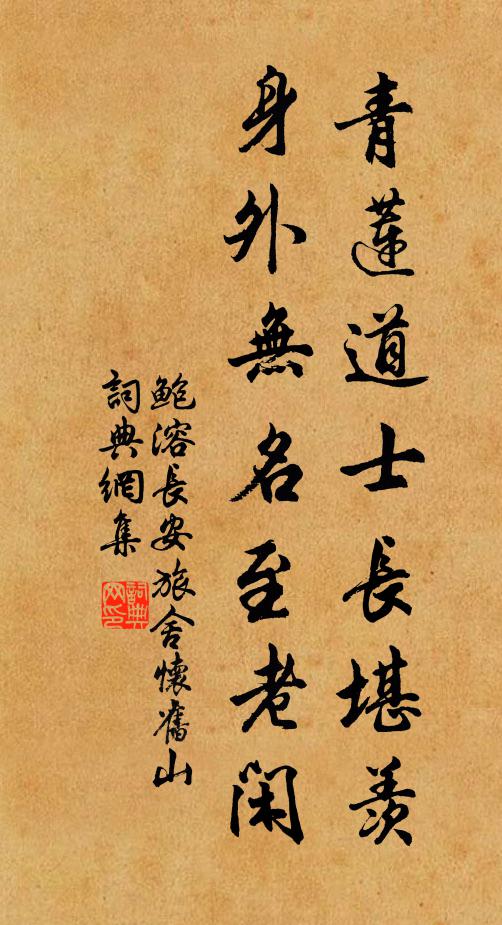 青蓮道士長堪羨
身外無名至老閑
鮑溶長安旅舍懷舊山
詞典網集
詞典網印